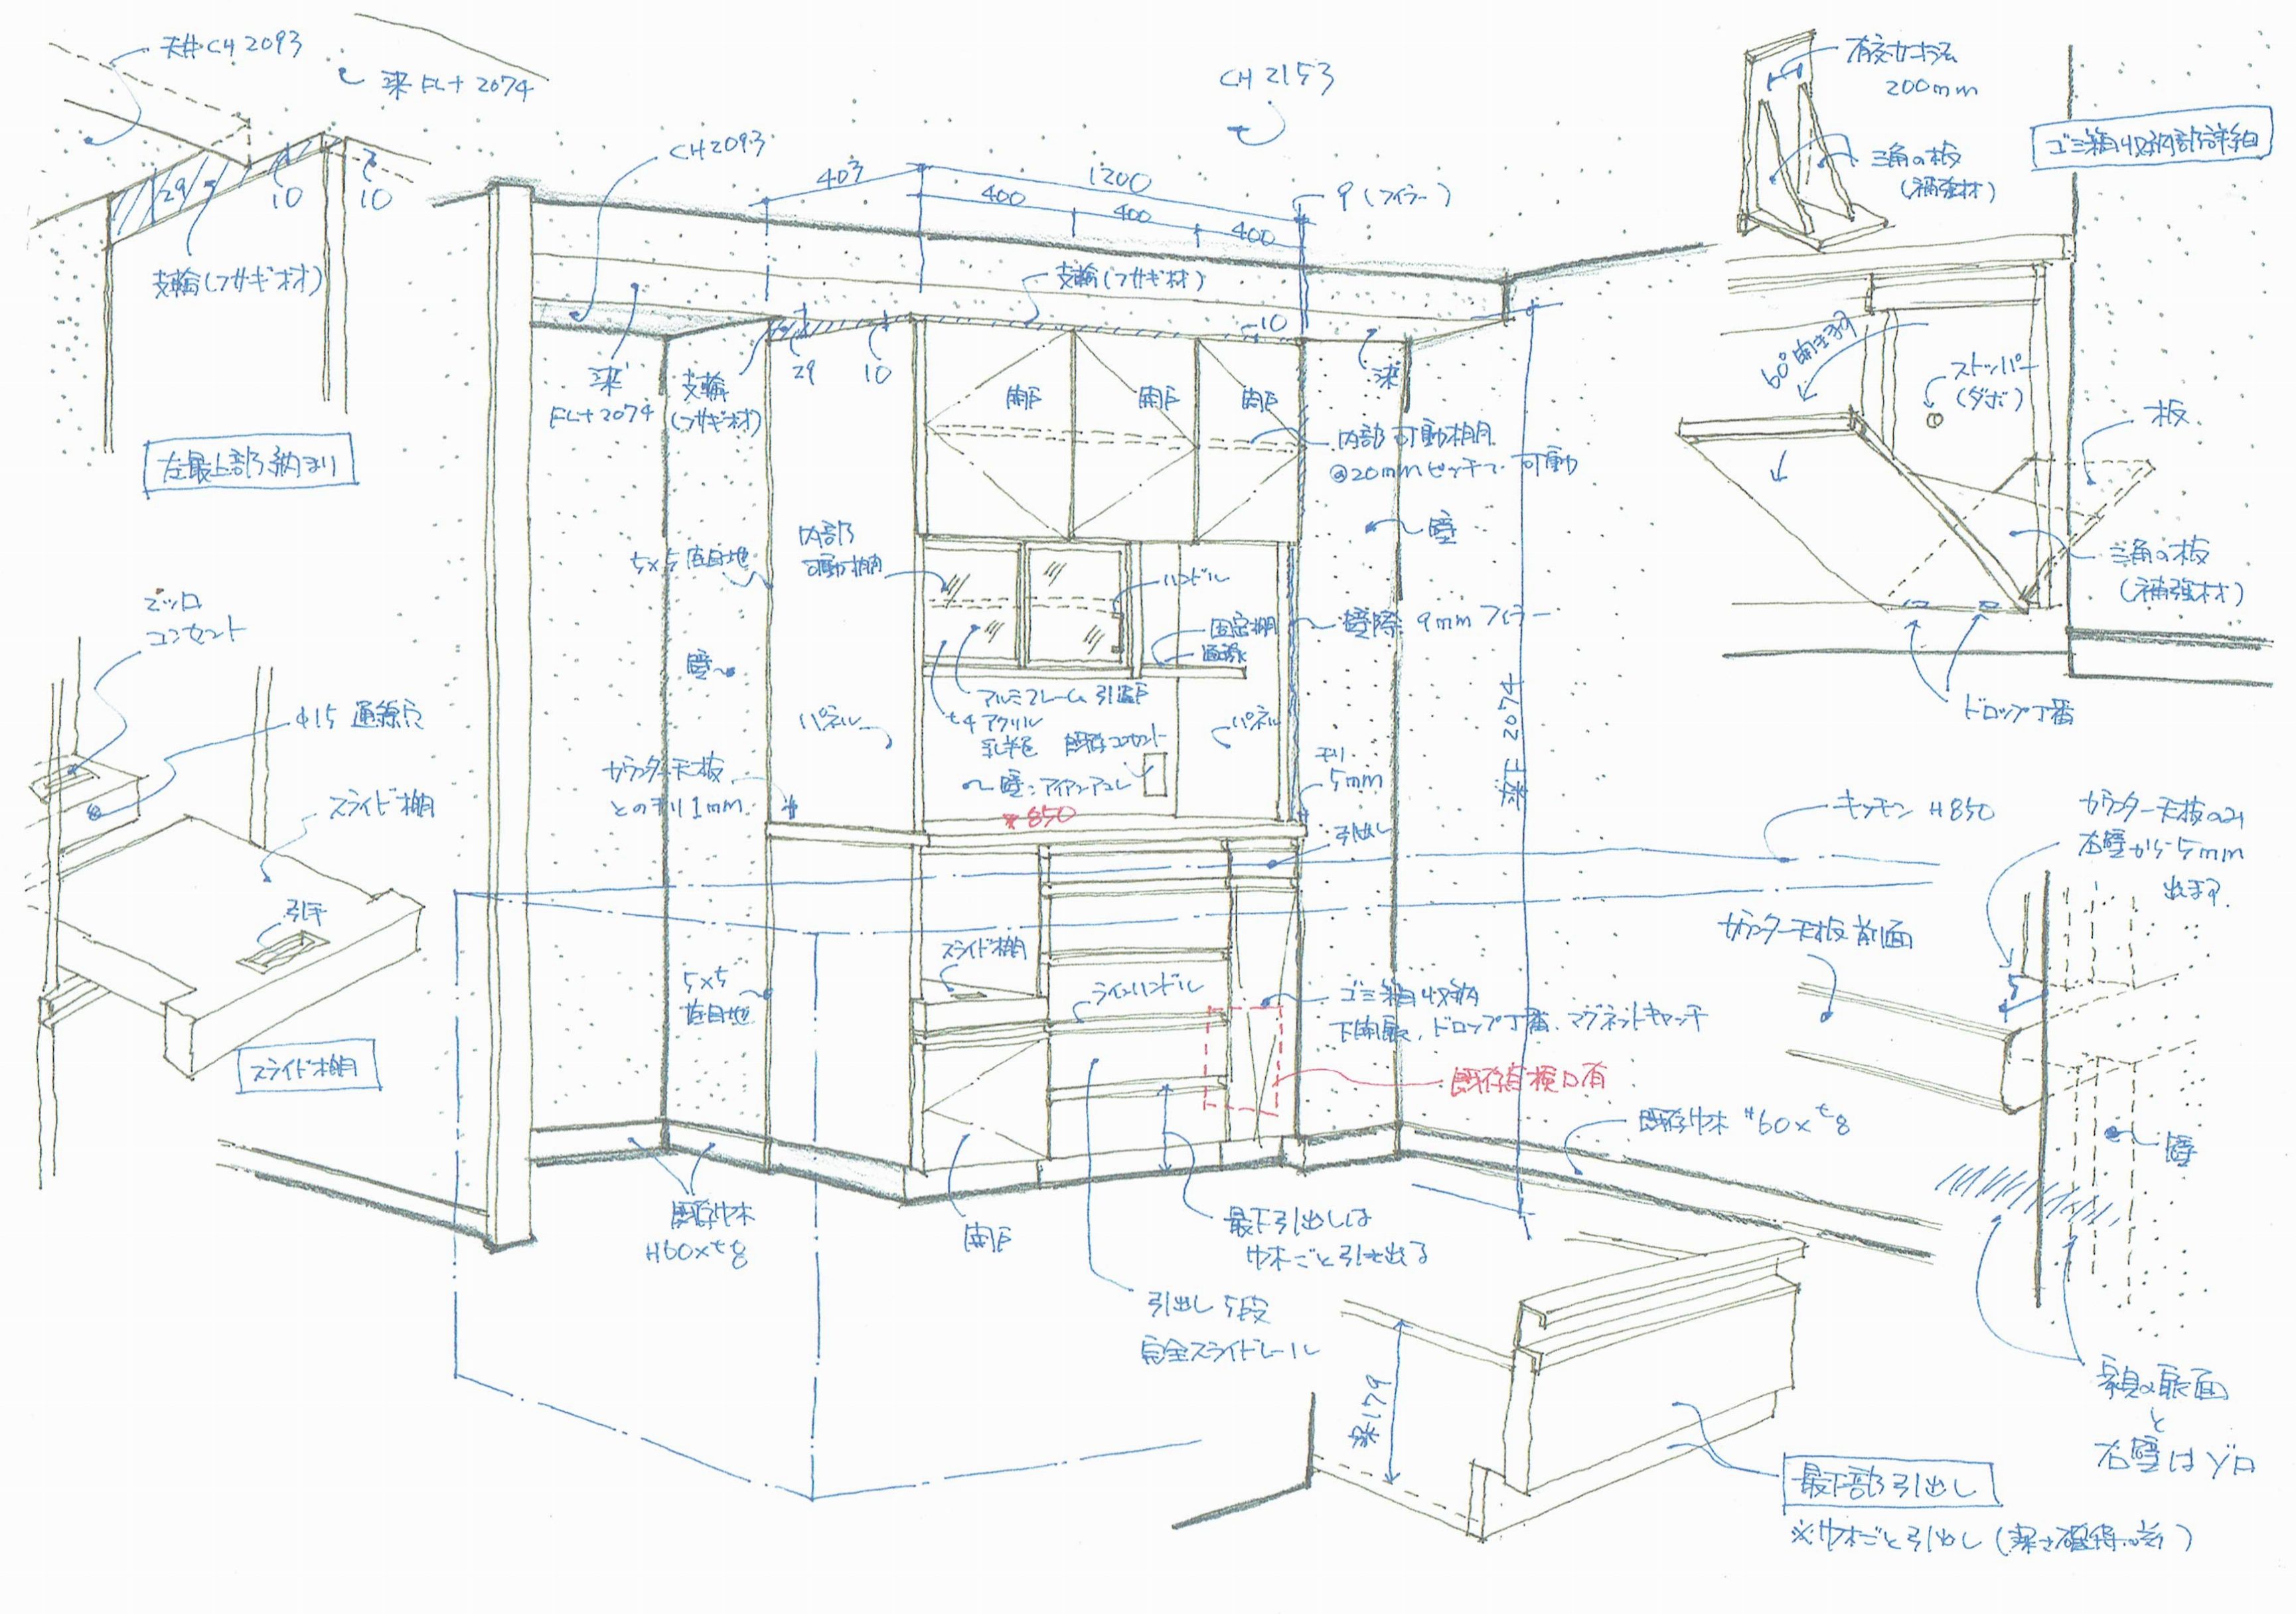 天井CH2093
梁FL+2074
29
10
10
支輪(フサギ材)
左最上部納まり
CH2153
CH2093
403
1200
400
400
400
9(フィラー)
支輪(フサギ材)
10
梁
FL+2074
支輪
(フサギ材)
29
10
梁
開戸
開戸
開戸
内部可動棚
@20mmピッチで可動
壁
内部
可動棚
5×5
ハンドル
固定棚
壁際 9mmフィラー
壁
アルミフレーム引違戸
t4アクリル
乳半色
既存コンセント
パネル
パネル
カウンター天板
とのチリ1mm
チリ
5mm
*850
引出し
梁下2074
キッチンH850
スライド棚
ラインハンドル
5×5
ゴミ箱収納
ドロップ丁番、マグネットキャッチ
既存点検口有
既存巾木 H60×t8
既存巾木
H60×t8
開戸
最下引出しは
巾木ごと引き出る
引出し5段
完全スライドレール
2ッ口
コンセント
φ15 通線穴
スライド棚
引手
スライド棚
有効寸法
200mm
三角の板
(補強材)
ゴミ箱収納部詳細
60°開きます
ストッパー
(ダボ)
板
三角の板
(補強材)
ドロップ丁番
カウンター天板のみ
右壁から5mm
出ます。
カウンター天板前面
5
壁
家具の扉面
と
右壁はゾロ
深179
最下部引出し
※巾木ごと引出し(深さ確保の為)